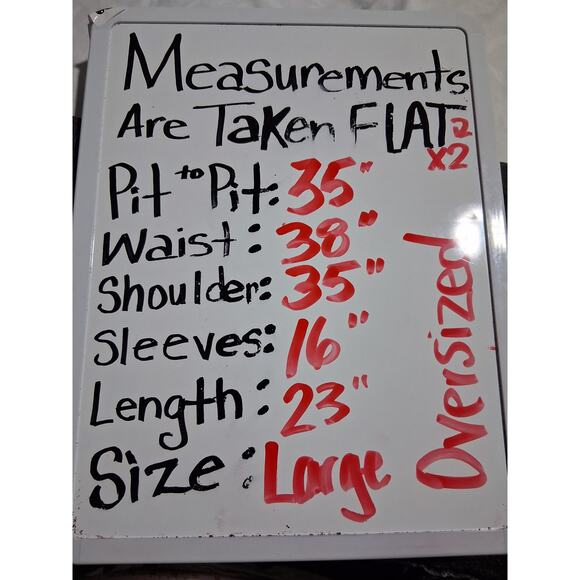 Measurements
Are Taken FLAT
x2
Pit to Pit: 35"
Waist: 38"
Shoulder: 35"
Sleeves: 16"
Length: 23"
Size: Large
Oversized